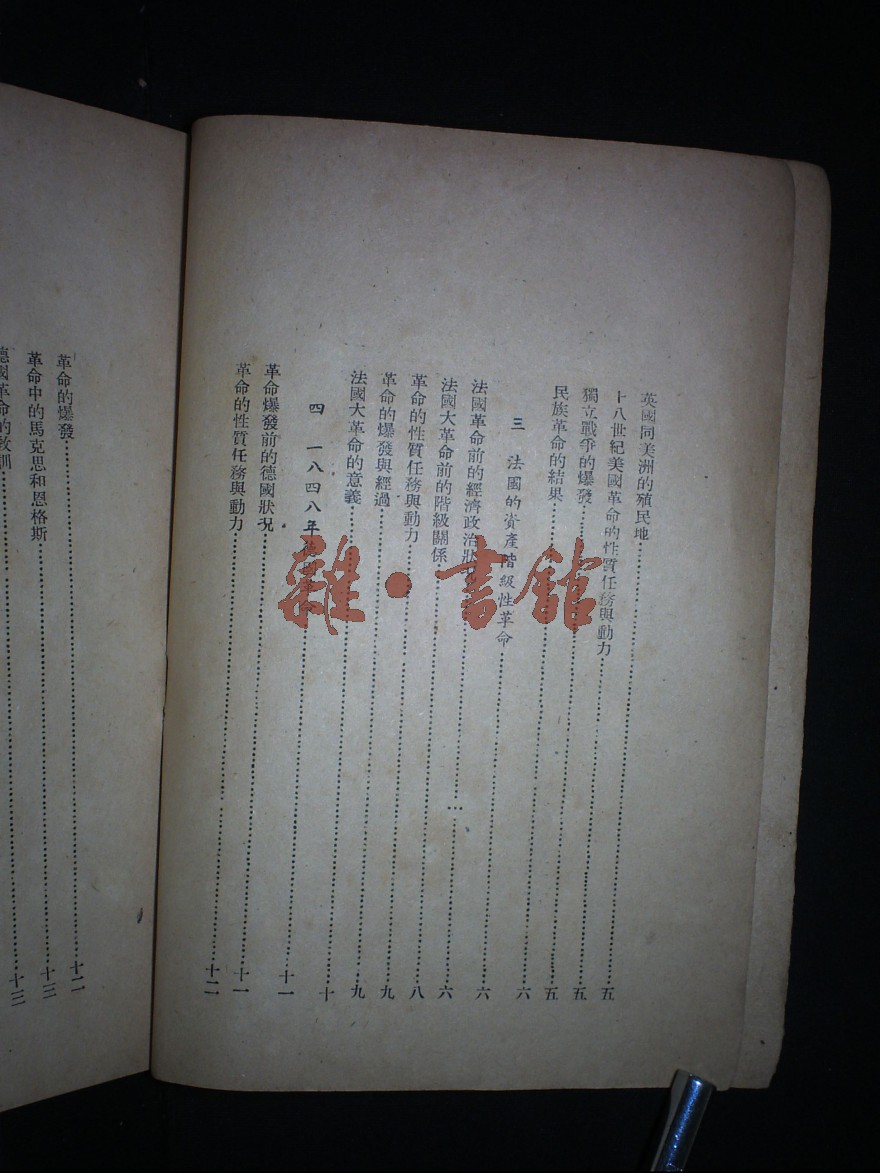 英國同美洲的殖民地……五
十八世紀美國革命的性質任務與動力……五
獨立戰爭的爆發……五
民族革命的結果……六
三 法國的資產階級性革命……六
法國革命前的經濟政治狀……六
法國大革命前的階級關係……八
革命的性質任務與動力……九
革命的爆發與經過……九
法國大革命的意義……十
四 一八四八年德國革命……十一
革命爆發前的德國狀况……十一
革命的性質任務與動力……十二
革命的爆發……十二
革命中的馬克思和恩格斯……十三
德國革命的教訓……十三
雜·書館